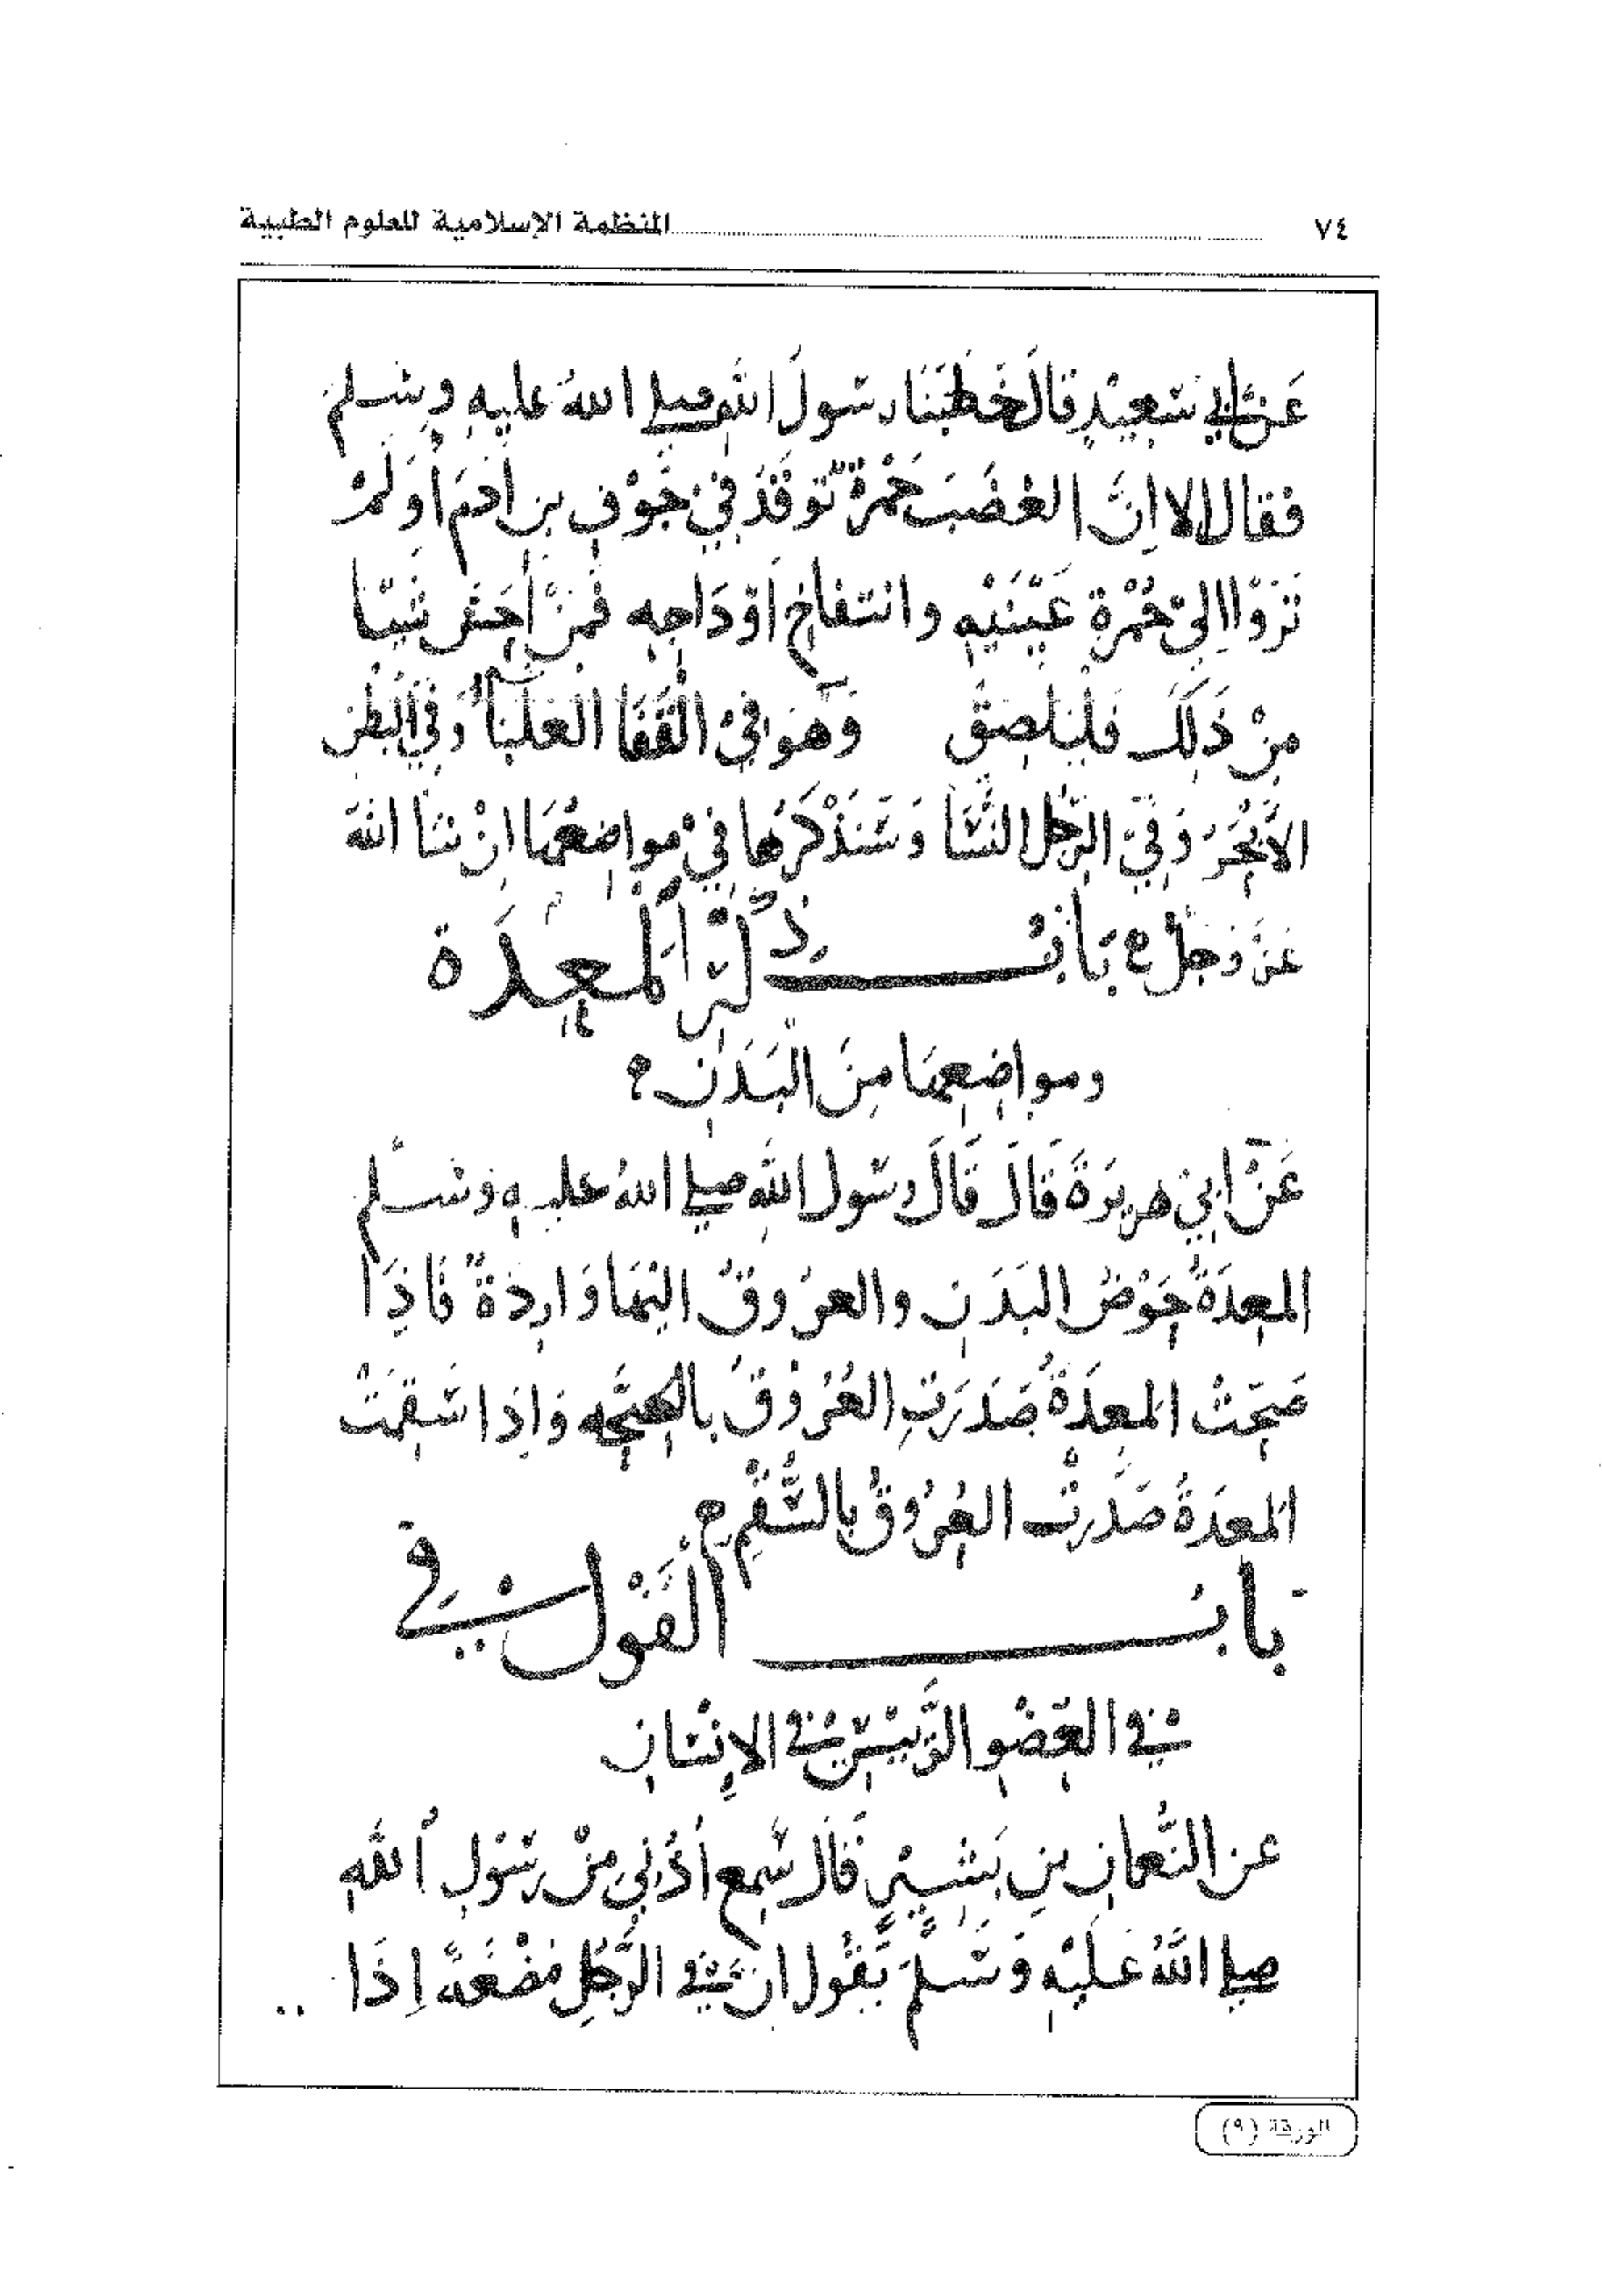 ٧٤ المنظمة الإسلامية للعلوم الطبية
عَنْ ابي سَعِيْدٍ قَالَ خَطَبَنَا رسُولَ اللهِ صلى اللهُ عليهِ وسلم
فقال الا اِنَّ الغضَبَ جَمْرةٌ تُوقَدُ فِيْ جَوْفِ بن اٰدمَ أوَ لَمْ
تَرَوْا اِلىٰ حُمْرةِ عَيْنَيْهِ وانتفاخِ اَوْدَاجِه فَمَنْ أحَسَّ شَيئا
مِنْ ذَلِكَ فليَلصَقْ وَهَو فيْ القَفَا العَلْبَاءُ وَفي البَطْنِ
الاَبْجُرَ وَفِيْ الرِّجْل النَّسَا وَسَنَذْكُرُها فيْ مواضِعهَا اِنْ شَا اللهُ
عَزَّ وَجَلَّ بَابُ ذِكْرُ المَعِدَة
ومواضِعهَا مِنَ البَدَنِ
عَنْ ابيْ هريرَةَ قَالَ قَالَ رسُول اللهِ صلى اللهُ عليهِ وَسَلم
المعِدَةُ حَوْضُ البَدَنِ والعرُوقُ اليْهَا وَارِدَةٌ فَاِذَا
صَحّتْ المعِدَةُ صَدَرَتِ العُرُوْقُ بالصِحّه وَاِذا سَقِمَتْ
المعدَةُ صَدَرتْ العُرُوقُ بالسُّقْمِ
بابُ القَوْل في
في العُضْو الرَّئيسِ في الاِنسَانِ
عن النُعمانِ بنِ بَشِيْرٍ قَالَ سَمِعَ أُذُنِي مِنْ رَسُولِ اللهِ
صلى اللهُ عَلَيْهِ وَسَلَّمَ يَقُول ان في الرَّجُلِ مُضْغَةً اِذَا ..
الورقة (٩)